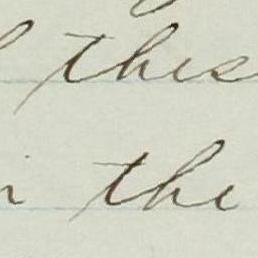 this
the